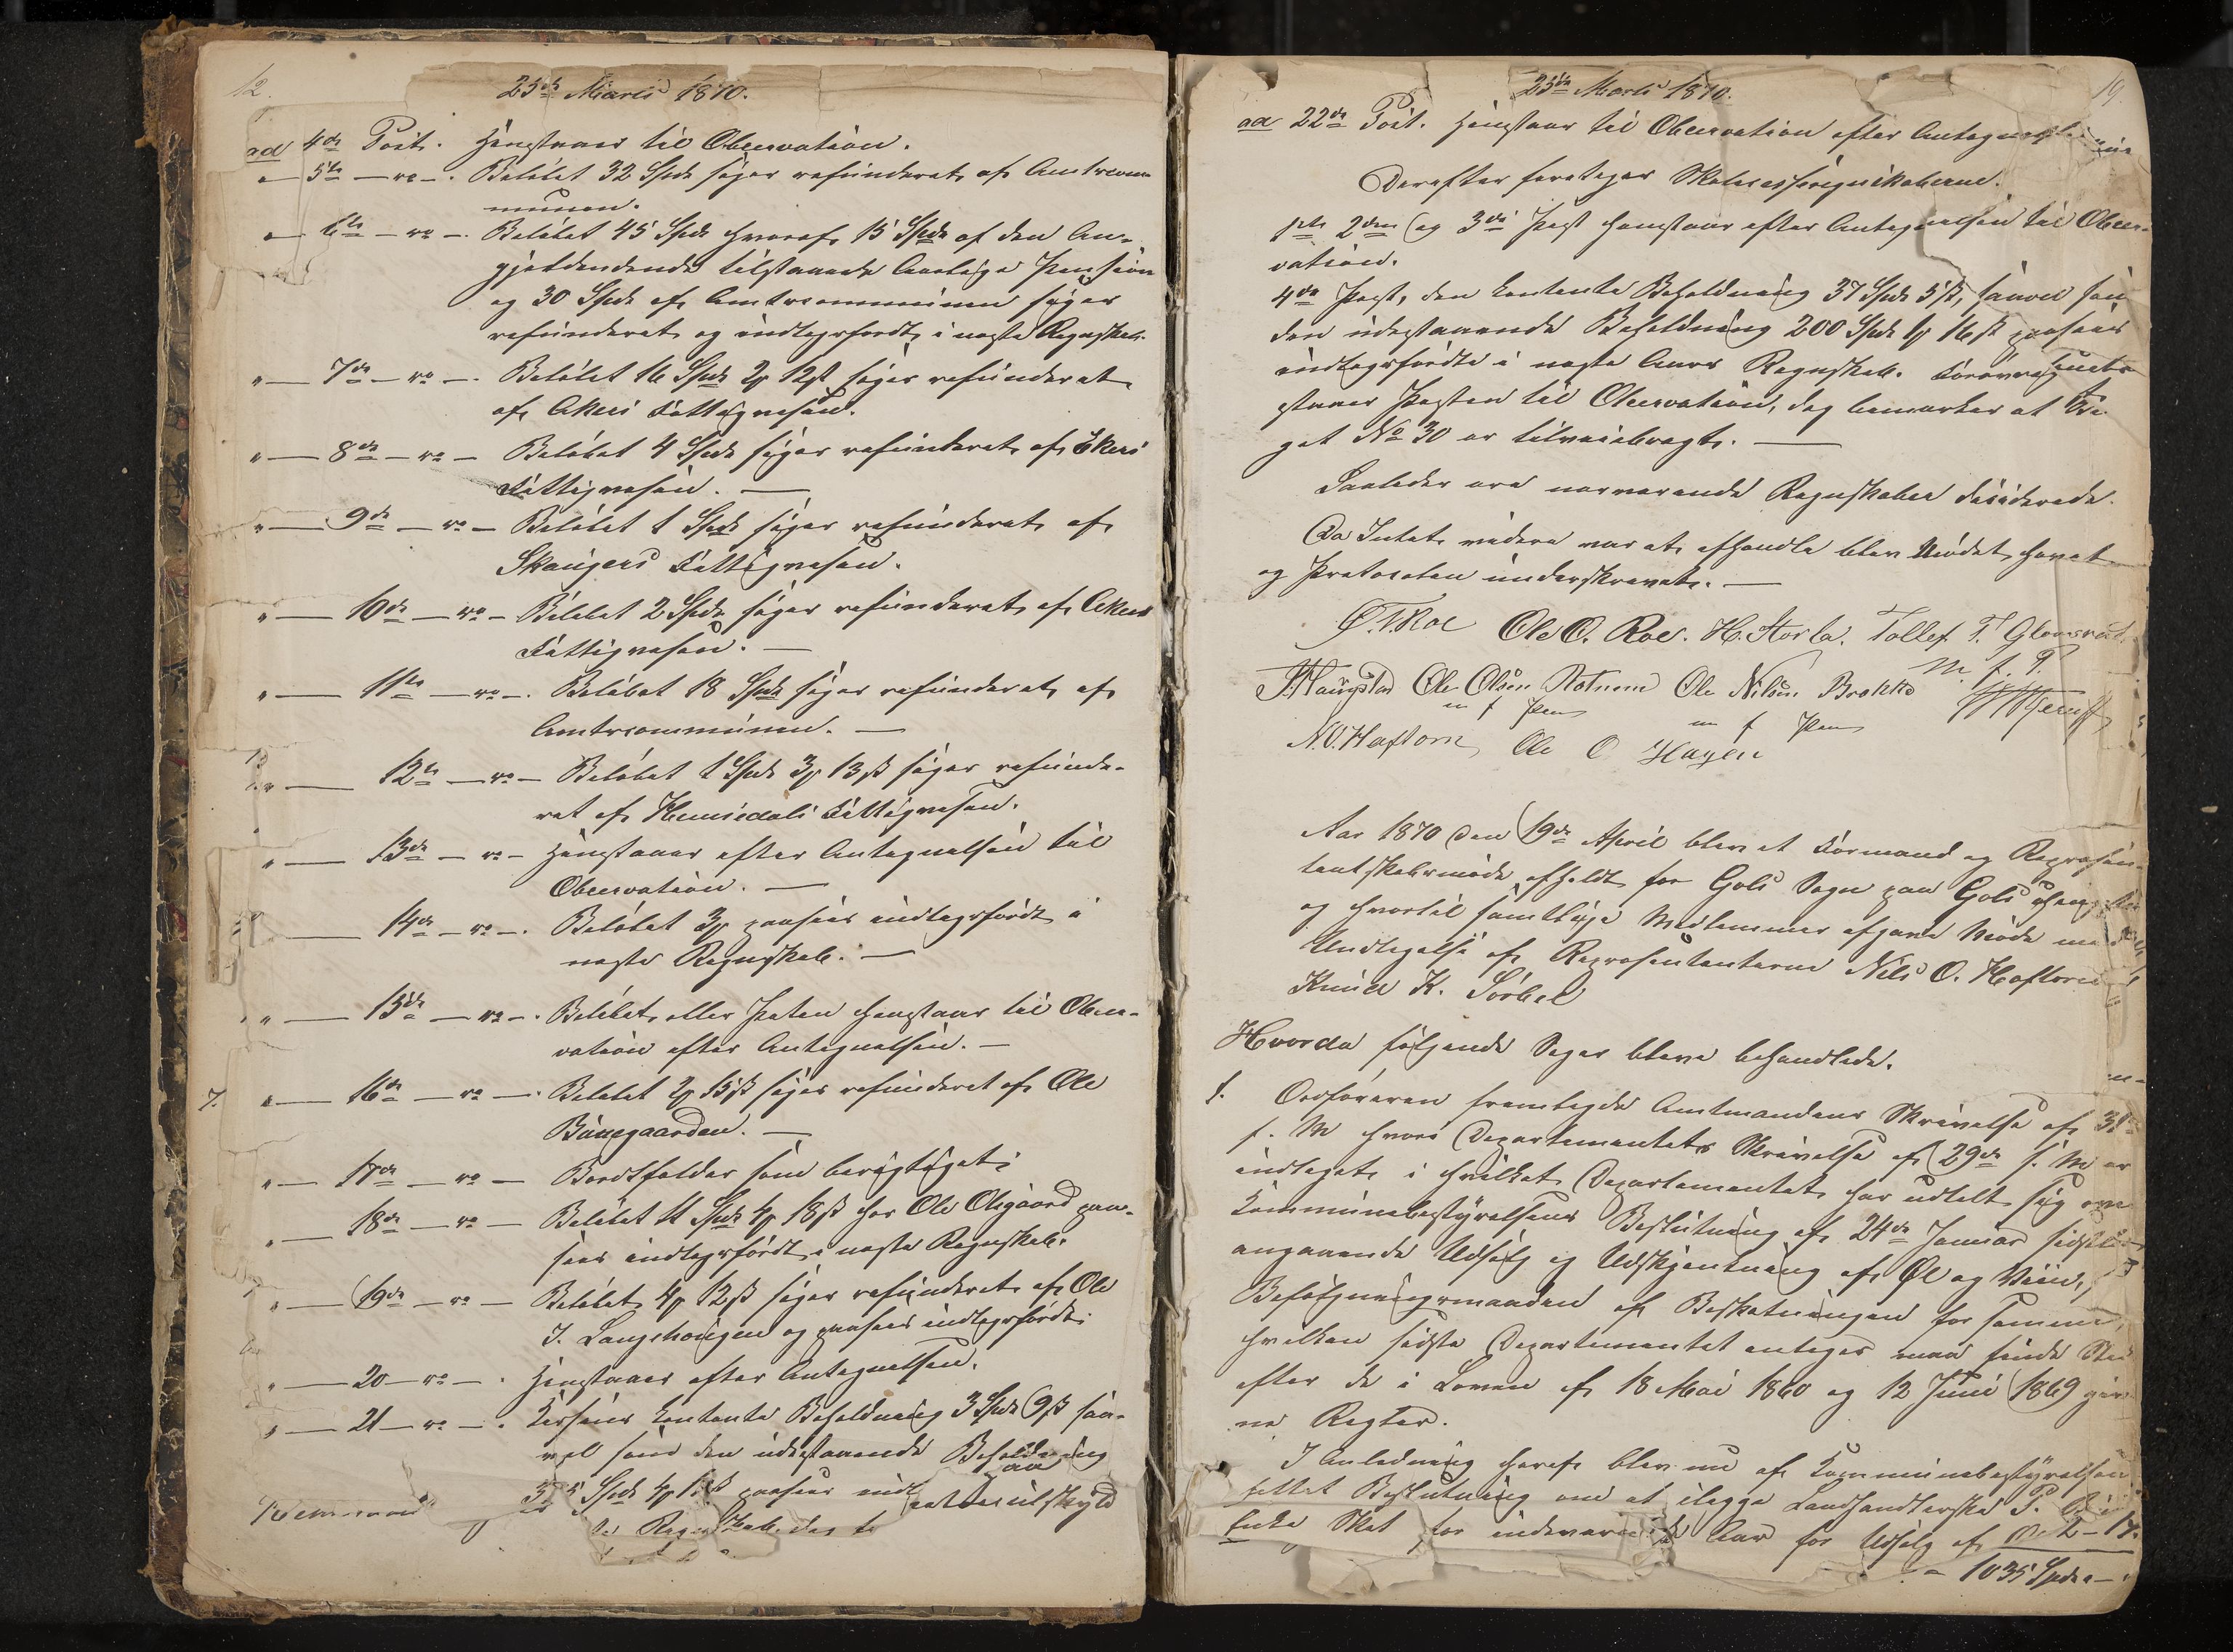 12.
25de Marts 1870.
ad 4de Post. Henstaaer til Observation.
" — 5te — ro — . Beløbet 32 Spd siges refunderet af Amtscom-
munen.
" — 6te — ro — . Beløbet 45 Spd hvoraf 15 Spd af den An-
gjældendende tilstaaede Aarlige Pension
og 30 Spd af Amtscommunen siges
refunderet og indtægtsført i næste Regnskab.
" — 7de — ro — . Beløbet 16 Spd 2 12 ß siges refunderet
af Akers Fattigvæsen.
" — 8de — ro — Beløbet 4 Spd siges refunderet af Ekers
Fattigvæsen. —
" — 9de — ro — Beløbet 1 Spd siges refunderet af
Skaugers Fattigvæsen.
" — 10de — ro — Beløbet 2 Spd siges refunderet af Akers
Fattigvæsen. —
" — 11te — ro — . Beløbet 18 Spd siges refunderet af
Amtscommunen. —
" — 12te — ro — Beløbet 1 Spd 3 13 ß siges refunde-
ret af Hemsedals Fattigvæsen.
" — 13de — ro — Henstaaer efter Antegnelsen til
Observation. —
— 14de — ro — . Beløbet 3 paasees indtægtsført i
næste Regnskab. —
" — 15de — ro — . Beløbet eller Posten henstaaer til Obser-
vation efter Antegnelsen. —
7. " — 16de — ro — . Beløbet 2 15 ß siges refunderet af Ole
— 
" — 17de — ro — Bortfalder som berigtiget.
" — 18de — ro — Beløbet 11 Spd 4 18 ß hos Ole Olsgaard paa-
sees indtægtsført i næste Regnskab.
" — 19de — ro — Beløbet 4 12 ß siges refunderet af Ole
T. Langehougen og paasees indtægtsført.
" — 20 — ro — . Henstaaer efter Antegnelsen.
" — 21 — ro — . Kassens contante Beholdning 3 Spd 9 ß saa-
vel som den udestaaende Beholdning
Spd 4 paasees
25de Marts 1870.
19.
ad 22de Post. Henstaaer til Observation efter Antegnelsen
Derefter foretoges Skolecasseregnskaberne.
1ste 2den og 3die Post henstaaer efter Antegnelsen til Obser-
vation.
4de Post, den contante Beholdning 37 Spd 5 ß, saavel som
den udestaaende Beholdning 200 Spd 1 16 ß paasees
indtægtsførte i næste Aars Regnskab. Forøvrigt
staaer Posten til Observation, dog bemærkes at Bi-
laget No 30 er tilveiebragt. —
Saaledes ere nærværende Regnskaber deciderede.
Da Intet videre var at afhandle blev Mødet hævet
og Protocolen underskrevet. —
Ole O. Roe. H. Storla. Tollef T. Glomsrud
m. f. P.
Ole Olsen Rotnem Ole Nilsen Brekke
m f Pen m f Pen
N.O. Haftorn Ole O Hagen
Aar 1870 den 19de April blev et Formand og Repræsen-
tantskabsmøde afholdt for Gols Sogn paa Gols
og hvortil samtlige Medlemmer afgave Møde med
Undtagelse af Repræsentanterne Nils O. Haftorn
Knud K. Sørbel
Hvorda følgende Sager bleve behandlede.
1. Ordføreren fremlagde Amtmandens Skrivelse af 31te
f. M hvori Departementets Skrivelse af 29de f. M er
indtaget i hvilket Departementet har udtalt sig om
Kommunebestyrelsens Beslutning af 24de Januar sidstl.
angaaende Udsalg og Udskjænkning af Øl og Viin,
af Beskatningen for samme,
hvilken sidste Departementet antager maa finde Sted
efter de i Loven af 18 Mai 1860 og 12 Juni 1869 giv-
ne Regler.
I Anledning heraf blev nu af Kommunebestyrelsen
fattet Beslutning om at ilægge Landhandlerske P.
Enke Skat for indeværende Aar for Udsalg af Øl 2 – 17.
1035 Spd